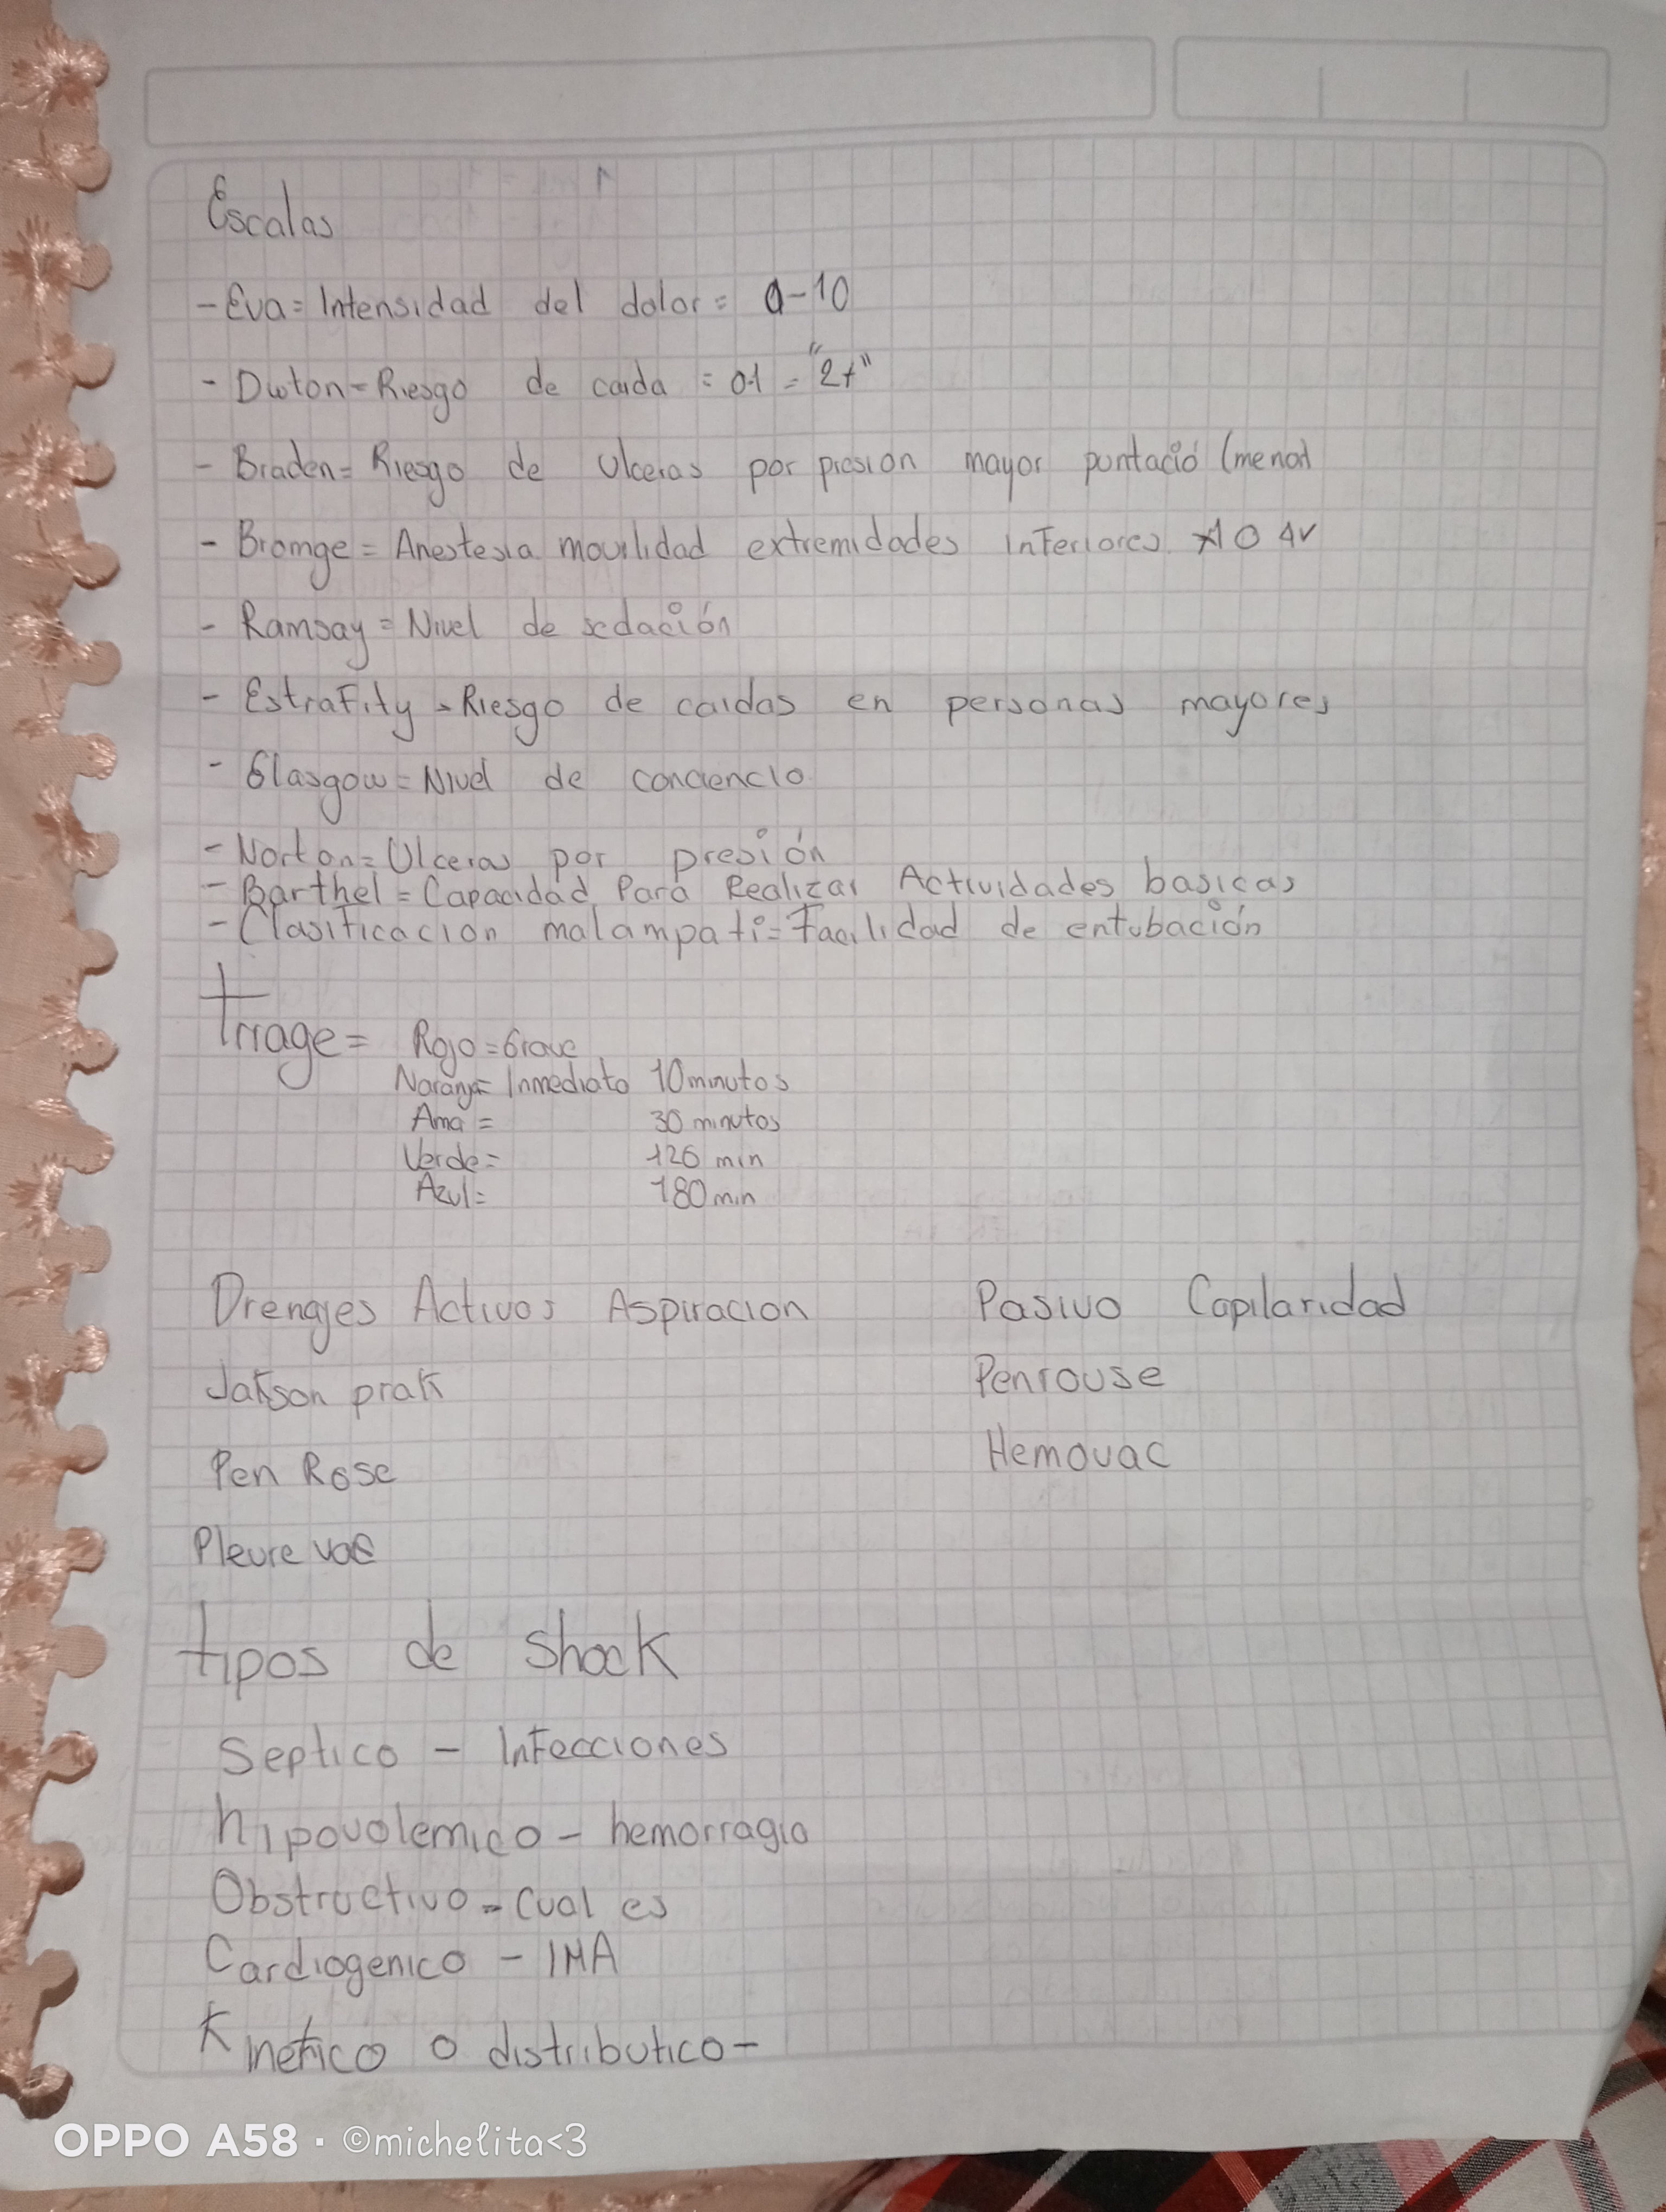 Escalas
- Eva = Intensidad del dolor = 0-10
- Dwton = Riesgo de caida = 0-1 = "2+"
- Braden = Riesgo de Ulceras por presion mayor puntació (menor
- Bromge = Anestesia movilidad extremidades inferiores
- Ramsay = Nivel de sedación
- Estrafity = Riesgo de caidas en personas mayores
- Glasgow = Nivel de conciencia
- Norton = Ulceras por presión
- Barthel = Capacidad Para Realizar Actividades basicas
- Clasificacion malampati = Facilidad de entubación
triage = Rojo = Grave
Naranja = Inmediato 10 minutos
Ama = 30 minutos
Verde = 120 min
Azul = 180 min
Drenajes Activos Aspiracion Pasivo Capilaridad
Jakson prak Penrouse
Pen Rose Hemovac
Pleure vac
tipos de shock
Septico - Infecciones
hipovolemico - hemorragia
Obstructivo - Cual es
Cardiogenico - IMA
Kinetico o distributico -
OPPO A58 · ©michelita<3